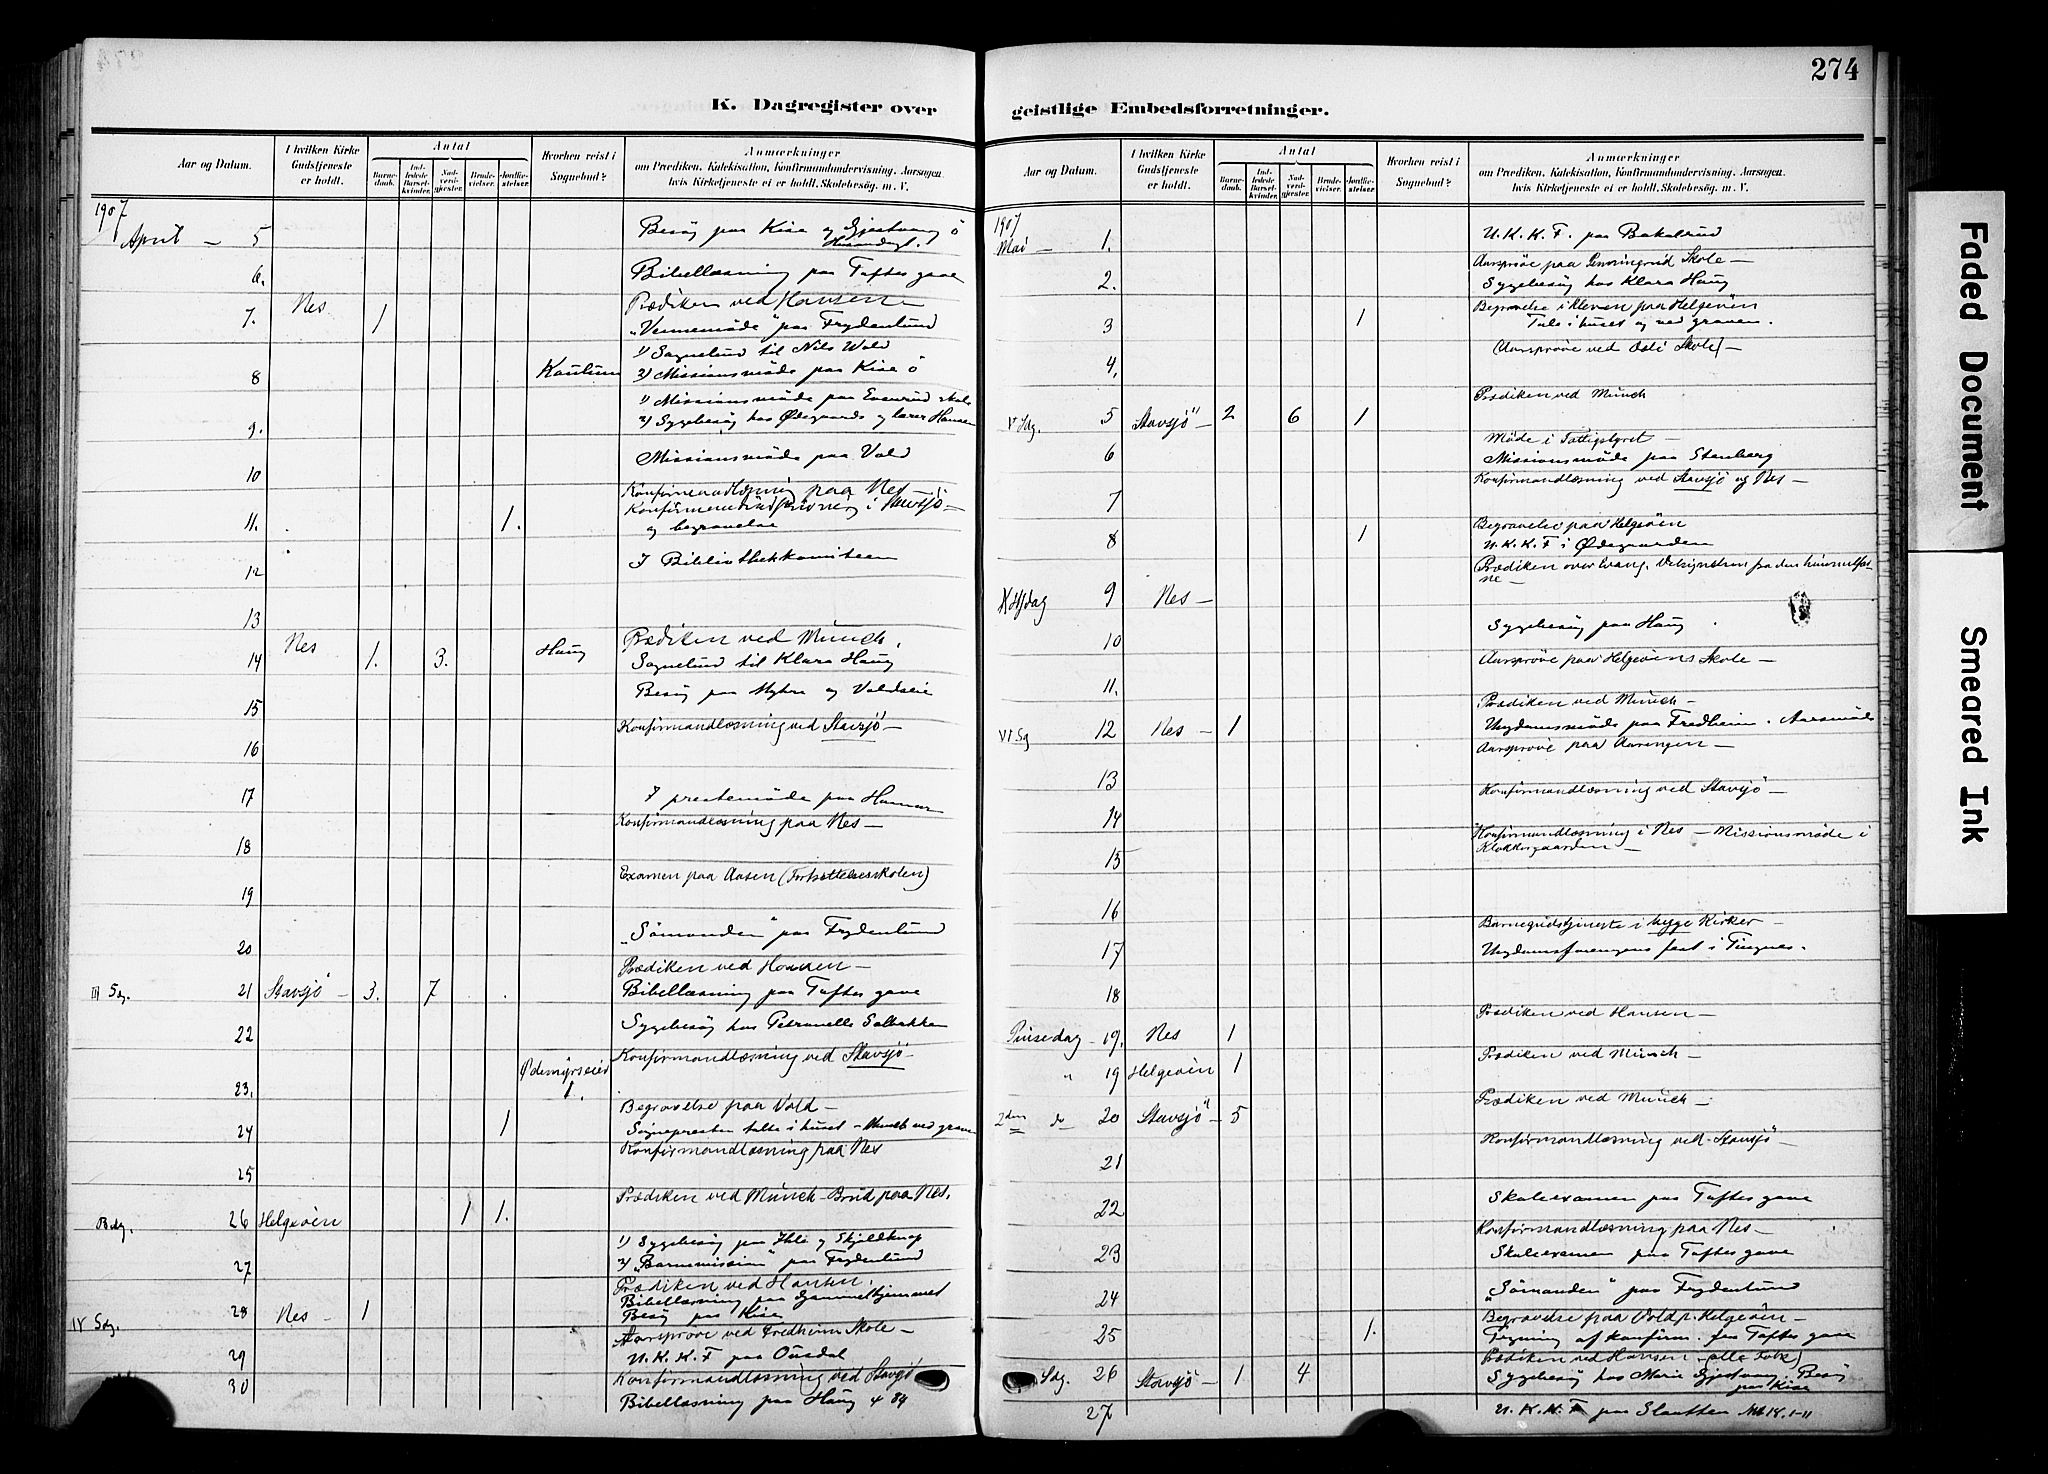 274
K. Dagregister over
geistlige Embedsforretninger.
Aar og Datum.
I hvilken Kirke Gudstjeneste er holdt.
Antal
Barnedaab.
Indledede Barselkvinder.
Nadverdgjester.
Brudevielser.
Jordfæstelser.
Hvorhen reist i Sognebud?
Anmærkninger
om Prædiken, Katekisation, Konfirmandundervisning, Aarsagen,
hvis Kirketjeneste ei er holdt, Skolebesøg, m. V.
1907
April — 5 Besøg paa Kise og Gjestvang ö
6. Bibellæsning paa Toftes gave
7. Nes 1 Prædiken ved Hansen
"Vennemøde" paa Frydenlund
8 1) Sognebud til Nils Vold
2) Missionsmøde paa Kise ö
9. 1) Missionsmøde paa Evenrud skole
2) Sygebesøg hos Ødegaards og lærer Hansen
10 Missionsmøde paa Vold
11. 1. Konfirmandlæsning paa Nes
Konfirmand i Stavsjö —
og begravelse
12 I Bibliothekkomiteen
13
14 Nes 1. 3. Haug Prædiken ved Münch.
Sognebud til Klara Haug
15 Besøg paa Myhre og Voldseie
16 Konfirmandlæsning ved Stavsjö —
17 I prestemøde paa Hamar
18 Konfirmandlæsning paa Nes —
19 Examen paa Aasen (Fortsættelsesskolen)
20 "Sömanden" paa Frydenlund
III Sdg. 21 Stavsjö — 3. 7 Prædiken ved Hansen —
Bibellæsning paa Toftes gave
22 Sygebesøg hos Petronelle Solbakken
23. Ødemyrseiet 1. Konfirmandlæsning ved Stavsjö —
24 1 Begravelse paa Vold —
Sognepresten talte i huset — Münch ved graven
25 Konfirmandlæsning paa Nes
Bdg. 26 Helgeöen 1 1. Prædiken ved Münch — Brud paa Nes.
27 1) Sygebesøg paa Ihle og Skjeldknap
2) "Barnemission" paa Frydenlund
IV Sdg. 28 Nes — 1 Prædiken ved Hansen.
Bibellæsning paa Gammelhjemmet
Besøg paa Kise
29 Aarsprøve ved Fredheim Skole —
U. K. K. F paa Ousdal
30 Konfirmandlæsning ved Stavsjö
Bibellæsning paa Haug
Aar og Datum.
I hvilken Kirke Gudstjeneste er holdt.
Antal
Barnedaab.
Indledede Barselkvinder.
Nadverdgjester.
Brudevielser.
Jordfæstelser.
Hvorhen reist i Sognebud?
Anmærkninger
om Prædiken, Katekisation, Konfirmandundervisning, Aarsagen,
hvis Kirketjeneste ei er holdt, Skolebesøg, m. V.
1907
Mai — 1. U. K. K. F. paa Bakalrud
2. Aarsprøve paa Skole —
Sygebesøg hos Klara Haug
3 1 Begravelse i Kleven paa Helgeöen
Tale i huset og ved graven.
4. Aarsprøve ved Skole —
V Sdg. 5 Stavsjö" 2 6 1 Prædiken ved Münch
6 Møde i Fattigstyret —
Missionsmøde paa Stenberg
7 Konfirmandlæsning ved Stavsjö og Nes —
8 1 Begravelse paa Helgeöen
U. K. K. F i Ødegaarden
9 Nes — Prædiken over Evang. Velsignelsen fra den himmelfarne —
10 Sygebesøg paa Haug
11. Aarsprøve paa Helgeöens Skole —
VI Sg 12 Nes — 1 Prædiken ved Münch —
Ungdomsmøde paa Fredheim. Aarsmøde
13 Aarsprøve paa Aarengen —
14 Konfirmandlæsning ved Stavsjö —
15 Konfirmandlæsning i Nes — Missionsmøde i
Klokkergaarden —
16
17 Barnegudstjeneste i begge Kirker —
Ungdomsforeningens fest i Tingnes.
18
Pinsedag — 19. Nes 1 Prædiken ved Hansen —
" 19 Helgeöen 1 Prædiken ved Münch —
2den do 20 Stavsjö" — 5 Prædiken ved Münch —
21 Konfirmandlæsning ved Stavsjö —
22 Skoleexamen paa Toftes gave
23 Konfirmandlæsning paa Nes —
Skoleexamen paa Toftes gave
24 "Sömanden" paa Frydenlund
25 1. Begravelse paa Vold p. Helgeöen —
af konfirm. fra Toftes gave
Sdg. 26 Stavsjö — 1 4 Prædiken ved Hansen — (alle Folk)
Sygebesøg hos Marie Gjestvang. Besøg
paa Kise
27 U. K. K. F paa Slaatten Mt 18. 1-11
Faded Document
Smeared Ink